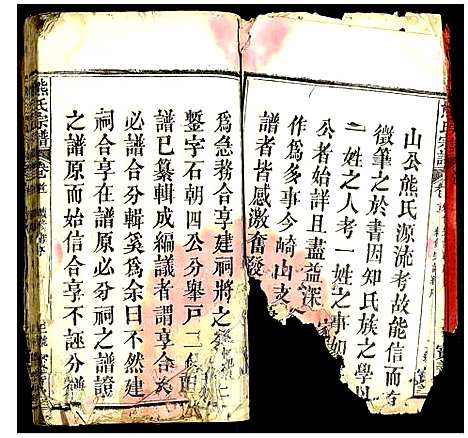 熊氏宗譜
山公熊氏源流考故能信而有
徵筆之於書因知氏族之學以
一姓之人考一姓之事如
公者始詳且盡益深
作為多事今崎山支
譜者皆感激奮發
為急務合享建祠將之
鏨字石朝四公分舉戶二
譜已纂輯成編議者謂享合
必譜合分輯奚為余曰不然建
祠合享在譜原必分祠之譜證
之譜原而始信合享不誣分譜
熊氏宗譜
卷首